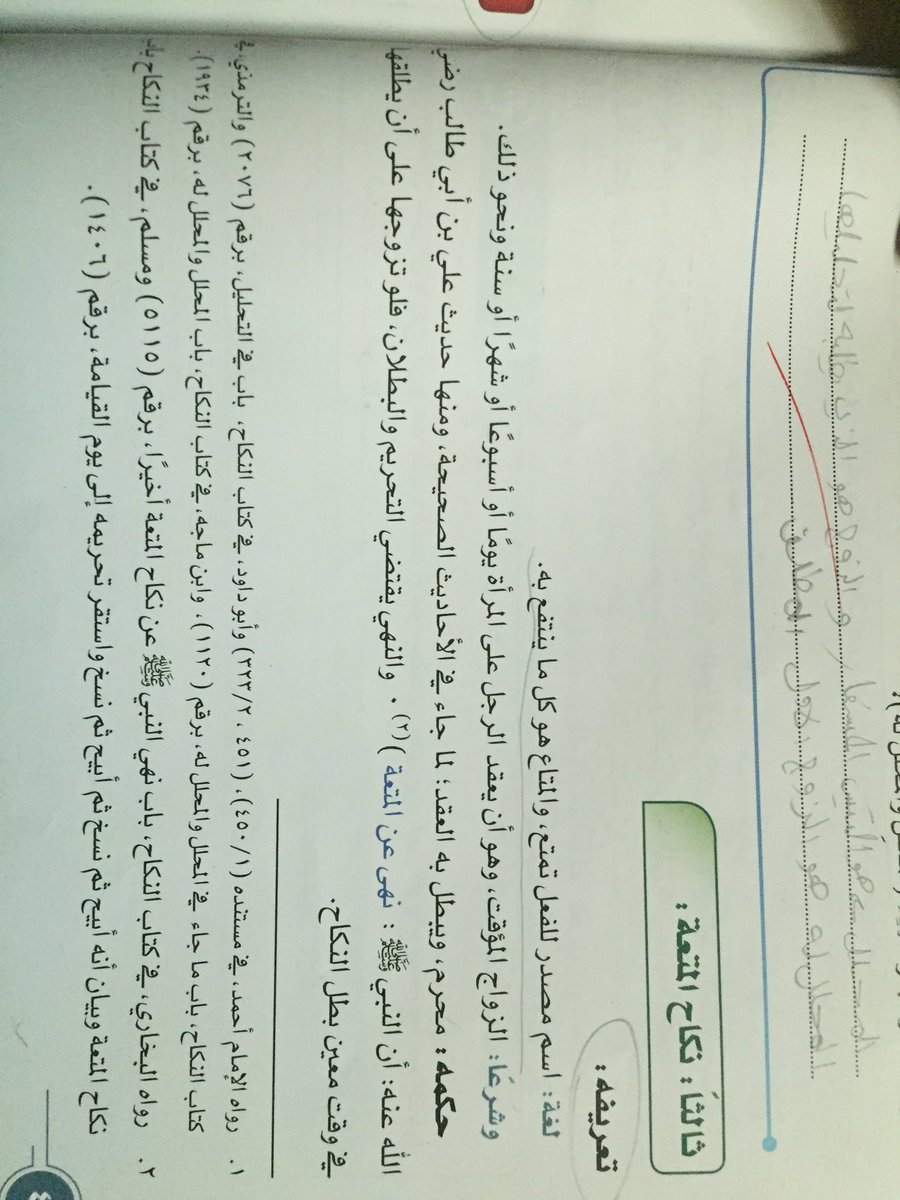 المحلل هو التيس المستعار و الزوج هو الذي
المحلل له هو الزوج الأول المطلق
ثالثاً: نكاح المتعة:
تعريفه:
لغة: اسم مصدر للفعل تمتع، والمتاع هو كل ما ينتفع به.
وشرعًا: الزواج المؤقت، وهو أن يعقد الرجل على المرأة يومًا أو أسبوعًا أو شهرًا أو سنة ونحو ذلك.
حكمه: محرم، ويبطل به العقد؛ لما جاء في الأحاديث الصحيحة، ومنها حديث علي بن أبي طالب رضي
الله عنه: أن النبي ﷺ : نهى عن المتعة )(٢) . والنهي يقتضي التحريم والبطلان، فلو تزوجها على أن يطلقها
في وقت معين بطل النكاح.
١ . رواه الإمام أحمد، في مسنده (٤٥٠/١)، (٤٥١ ، ٣٢٣/٢) وأبو داود، في كتاب النكاح، باب في التحليل، برقم (٢٠٧٦) والترمذي، في
كتاب النكاح، باب ما جاء في المحلل والمحلل له، برقم (١١٢٠)، وابن ماجه، في كتاب النكاح، باب المحلل والمحلل له، برقم (١٩٣٤).
٢ . رواه البخاري، في كتاب النكاح، باب نهي النبي ﷺ عن نكاح المتعة أخيرًا، برقم (٥١١٥) ومسلم، في كتاب النكاح باب
نكاح المتعة وبيان أنه أبيح ثم نسخ ثم أبيح ثم نسخ واستقر تحريمه إلى يوم القيامة، برقم (١٤٠٦).